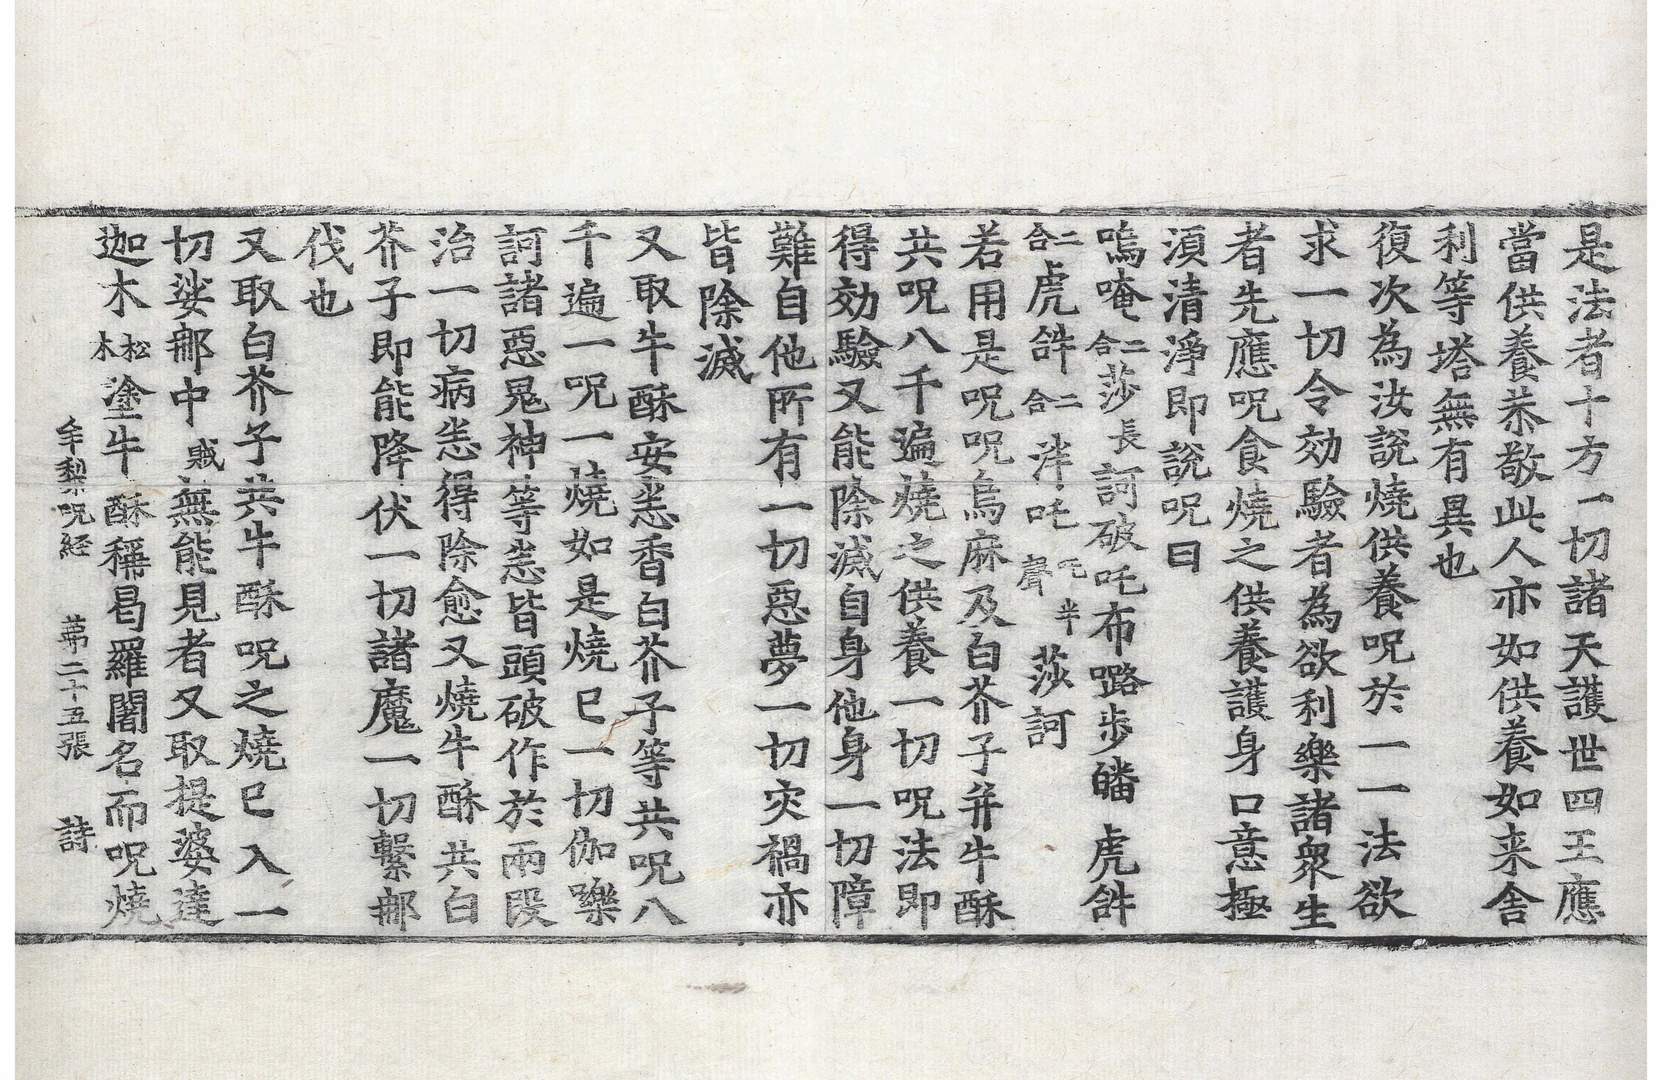 是法者十方一切諸天護世四王應
當供養恭敬此人亦如供養如来舎
利等塔無有異也
復次為汝說燒供養呪於一一法欲
求一切令効驗者為欲利樂諸衆生
者先應呪食燒之供養護身口意極
湏清淨即說呪曰
嗚唵二合莎長訶破吒布嚕步皤虎𤙖
二合虎𤙖二合泮吒吒半聲莎訶
若用是呪呪烏麻及白芥子并牛酥
共呪八千遍燒之供養一切呪法即
得効驗又能除滅自身他身一切障
難自他所有一切惡夢一切灾禍亦
皆除滅
又取牛酥安悉香白芥子等共呪八
千遍一呪一燒如是燒已一切伽㘑
訶諸惡鬼神等悉皆頭破作於兩段
治一切病悉得除愈又燒牛酥共白
芥子即能降伏一切諸魔一切繫郍
伐也
又取白芥子共牛酥呪之燒已入一
切娑郍中賊無能見者又取提婆達
迦木松木塗牛酥稱曷羅闍名而呪燒
牟梨呪経 苐二十五張 詩